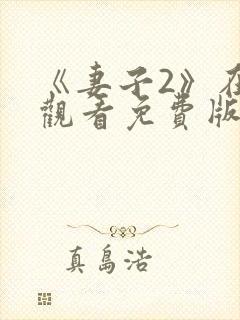 《妻子2》在
觀看免費版
真島浩